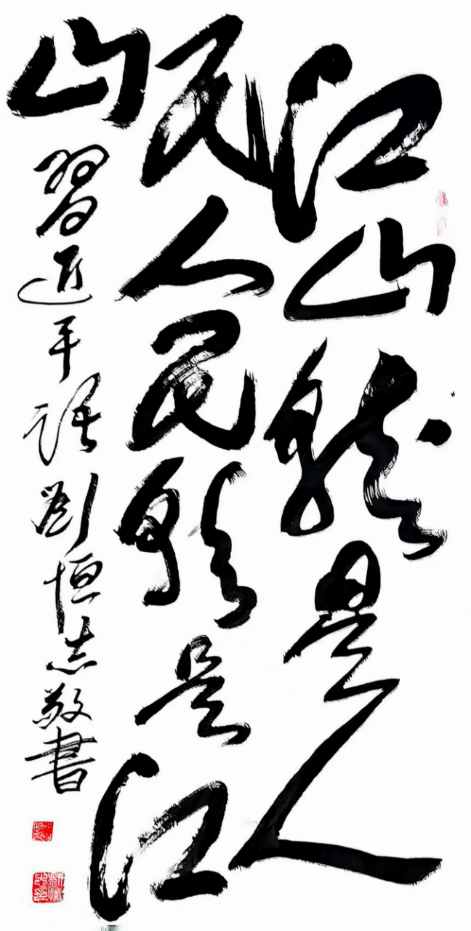 江山就是人
民人民就是江
山
習近平語劉恒志敬書